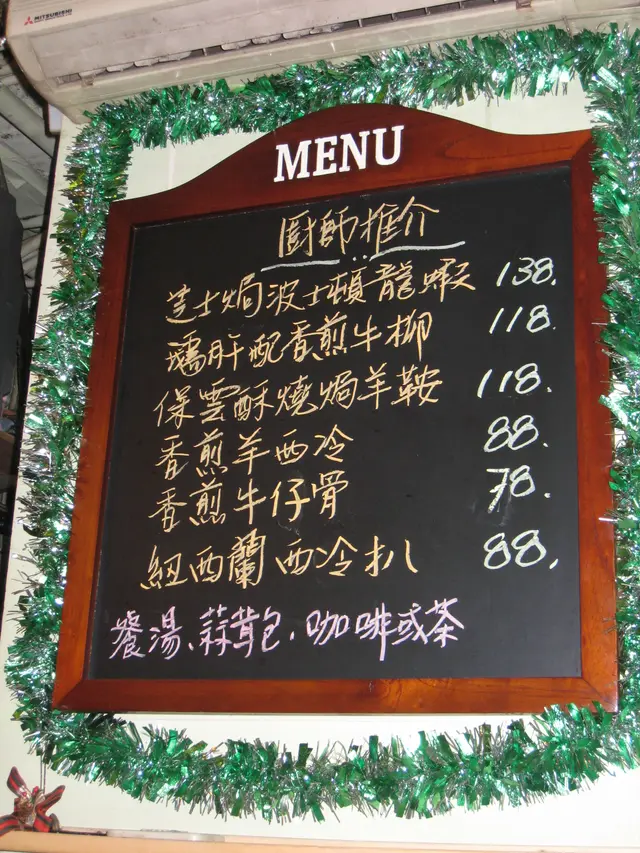 MITSUBISHI
MENU
廚師推介
芝士焗波士頓龍蝦 138.
鵝肝配香煎牛柳 118
保雲酥燒焗羊鞍 118.
香煎羊西冷 88.
香煎牛仔骨 78.
紐西蘭西冷扒 88,
餐湯、蒜茸包、咖啡或茶